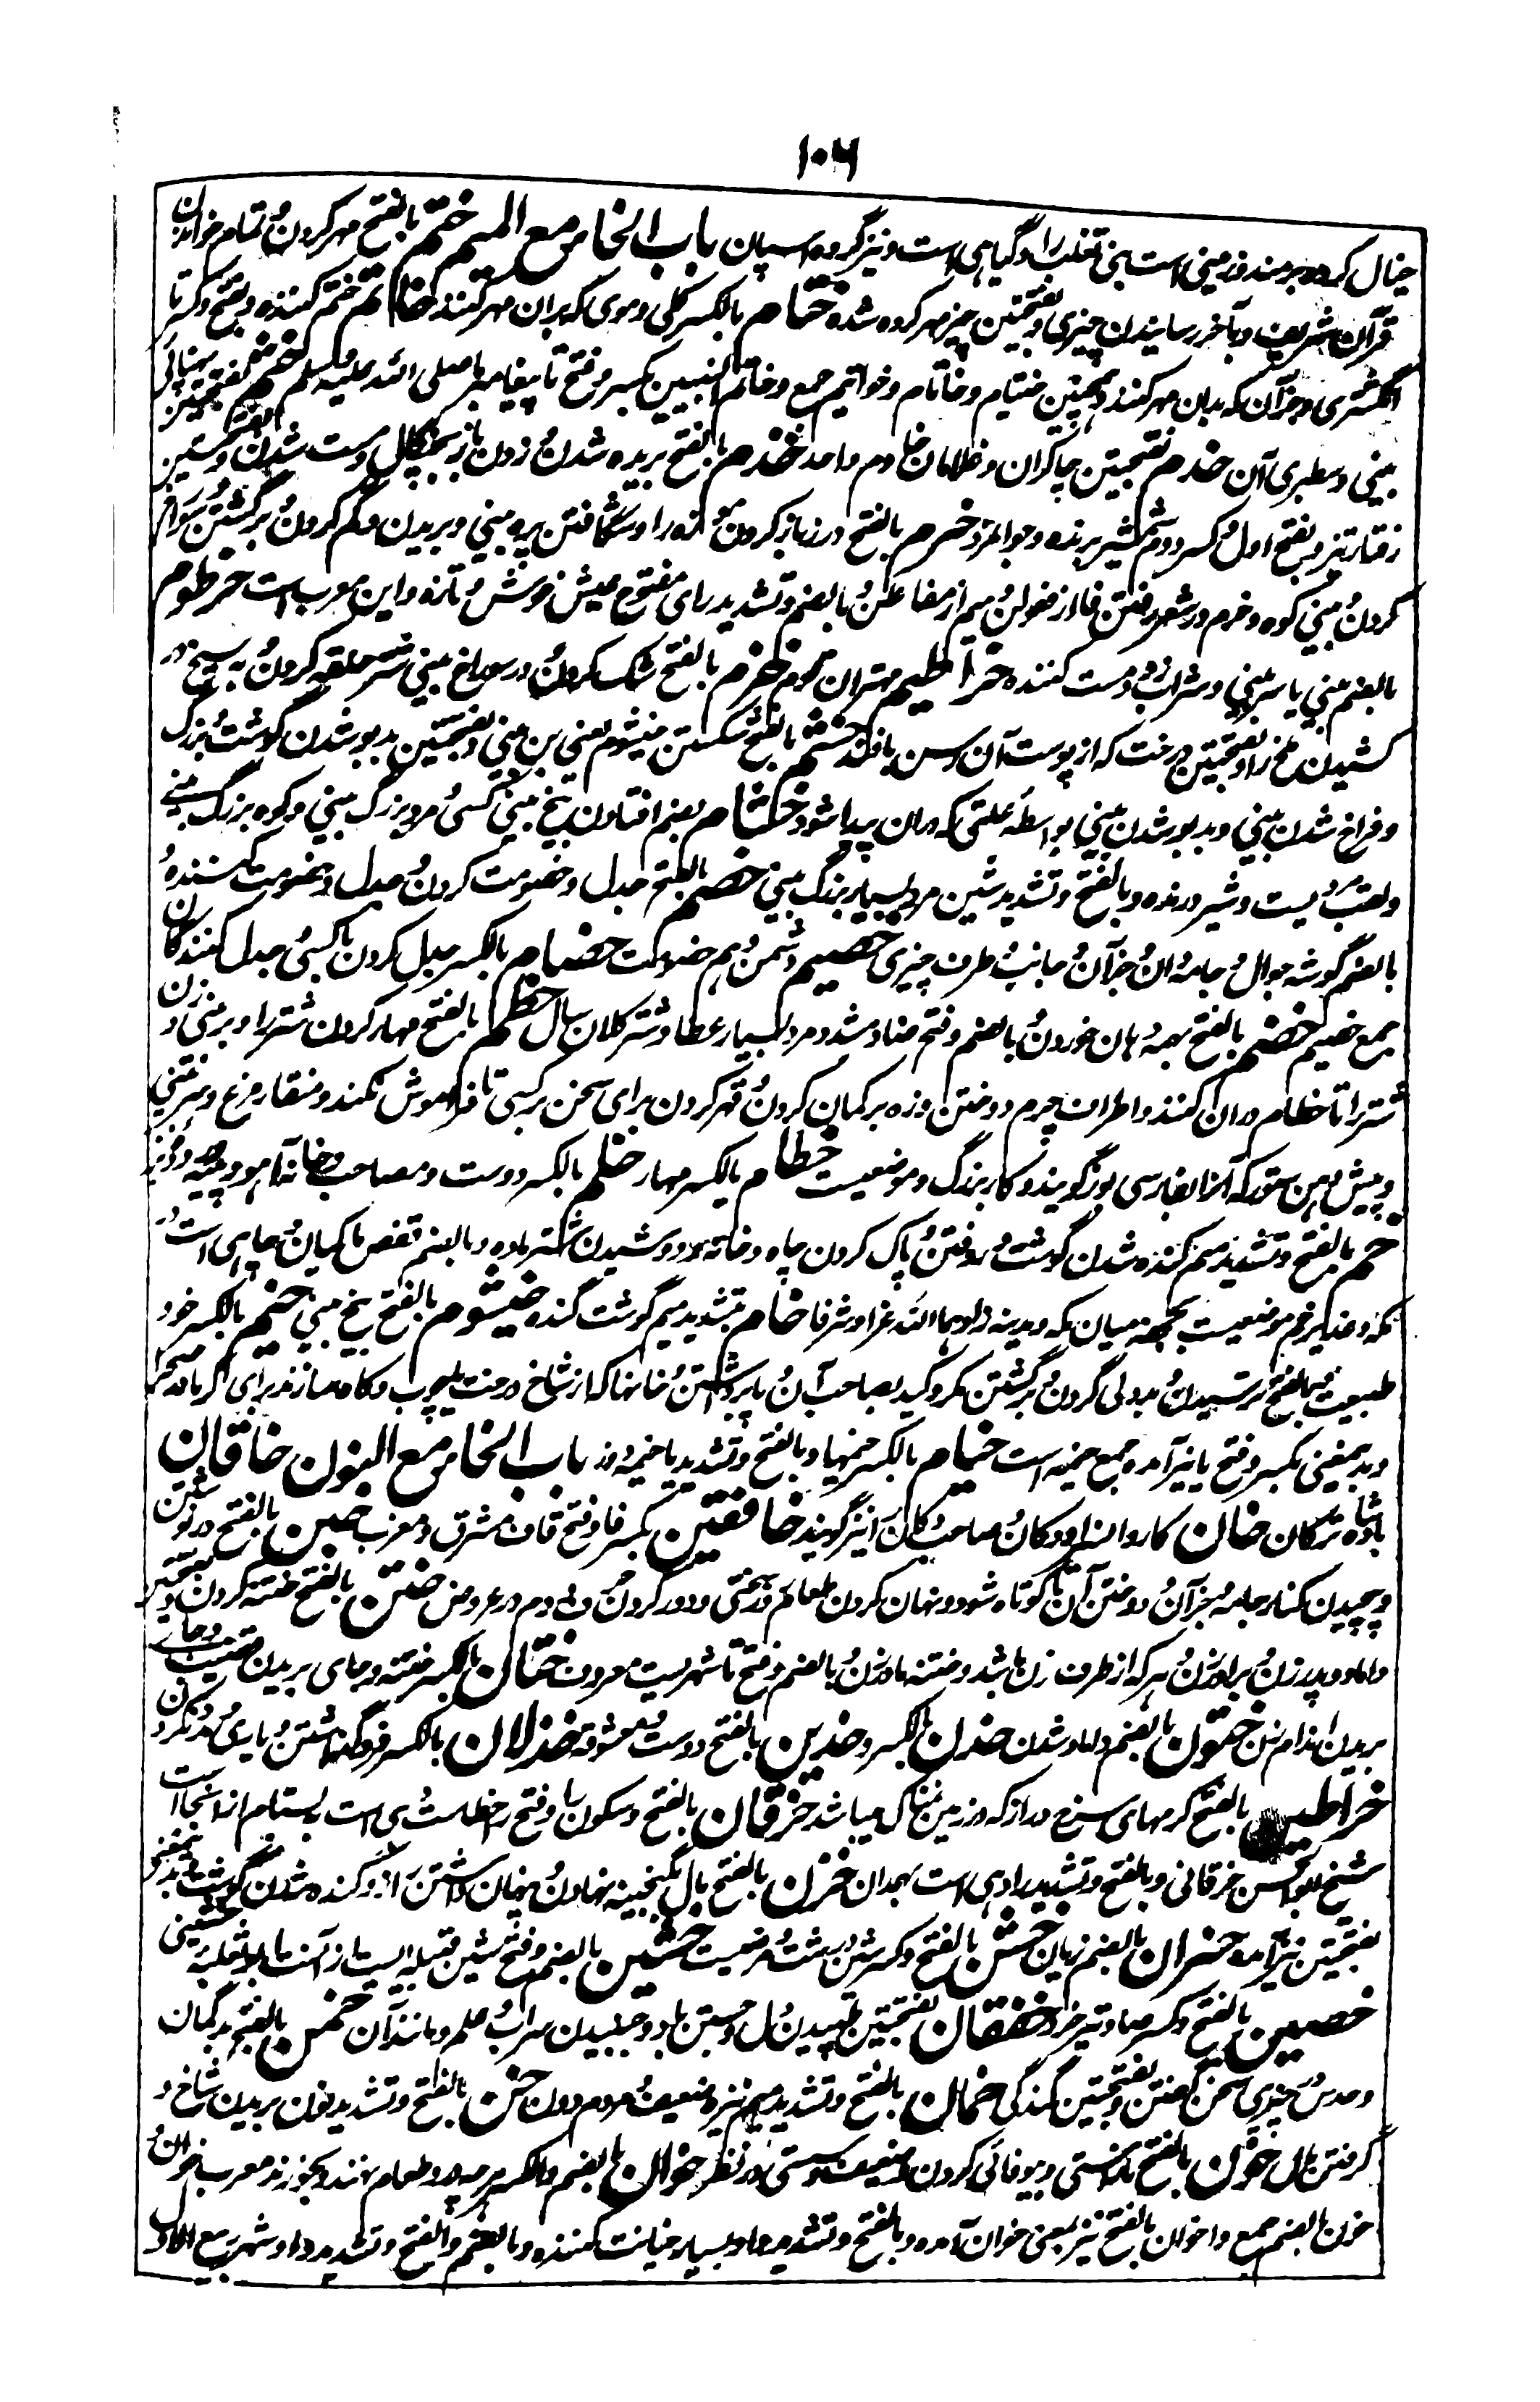 ۱۰۶
خیال کرده برومند و زمینی است بنی تغلب را و گیاهی است و نیز گروه اسپان باب الخاء مع المیم ختم بالفتح مهر کردن و تمام خواندن
قرآن شریف و بآخر رسانیدن چیزی و بفتحتین چیز مهر کرده شده ختام بالکسر گلی و مومی که بدان مهر کنند خاتم ختم کننده و بفتح و کسر تا
انگشتری و جز آن که بدان مهر کنند و همچنین ختیام و خاتام و خواتیم جمع و خاتم النبیین بکسر و فتح تا پیغامبر ما صلی الله علیه و سلم خثم بفتحتین پهنائی
بینی و سطبری آن خدم بفتحتین چاکران و غلامان خادم واحد خذم بالفتح بریده شدن و زدن باز بچنگال و مست شدن
رفتار تیز و بفتح اول و کسر دوم شمشیر برنده و جوانمرد خرم بالفتح درز باز کردن موزه را و شگافتن پره بینی و بریدن و کم کردن و برگشتن
کردن و بینی کوه و خرم در شعر رفتن فا از فعولن و میم از مفاعلتن و بالضم و تشدید رای مفتوح عیش خوش و تازه و این معرب است خرطوم
بالضم بینی یا سر بینی و شراب زود مست کننده خراطیم مهتران قوم خزم بالفتح شک کردن در سوراخ بینی شتر حلقه کردن و به سیخ در
کشیدن ملخ را و بفتحتین درخت که از پوست آن رسن بافند خشم بالفتح شکستن خیشوم یعنی بن بینی و بفتحتین بد بو شدن گوشت و بزرگ
و فراخ شدن بینی و بد بو شدن بینی بواسطه علتی که دران پیدا شود خشام بضم افتادن بیخ بینی کسی و مرد بزرگ بینی و کوه بزرگ بینی
و لقب مردیست و شیر درنده و بالفتح و تشدید شین مرد بسیار بزرگ بینی خصم بالفتح جدل و خصومت کردن و جدل و خصومت کننده و
بالضم گوشه جوال و جامه دان و جز آن و جانب و طرف چیزی خصیم دشمن و هم خصومت خصام بالکسر جدل کردن با کسی و جدل کنندگان
جمع خصیم خضم بالفتح بهمه دهان خوردن و بالضم و فتح ضاد مشدد مرد بسیار عطا و شتر کلان سال خطم بالفتح مهار کردن شتر را و بر بینی زدن
شتر را تا خطام دران کنند و اطراف چرم دوختن و زه بر کمان کردن و قهر کردن برای سخن بر کسی تا فراموش نکند و منقار مرغ و سر بینی
و پیش دهن ستور که آنرا بفارسی پوز گویند و کار بزرگ و موضعیست خطام بالکسر مهار خلم بالکسر دوست و مصاحب و خانه آهو
خم بالفتح و تشدید میم گنده شدن گوشت و رفتن و پاک کردن چاه و خانه و دوشیدن شتر ماده و بالضم قفص ماکیان و چاهی است در
مکه و غدیر خم موضعیست بجحفه میان مکه و مدینه زادهما الله عزا و شرفا خام بتشدید میم گوشت گنده خیشوم بالفتح بیخ بینی خیم بالکسر خو و
طبیعت و بالفتح ترسیدن و بددلی کردن و برگشتن مکر و کید بصاحب آن و پا برداشتن و خانها که از شاخ درخت یا چوب و کاه سازند برای گرما
و بدین معنی بکسر و فتح یا نیز آمده جمع خیمه است خیام بالکسر خیمها و بالفتح و تشدید یا خیمه دوز باب الخاء مع النون خاقان
پادشاه ترکان خان کاروانسرا و دکان و صاحب دکان را نیز گویند خافقین بکسر فا و فتح قاف مشرق و مغرب خبن بالفتح در نوشتن
و پیچیدن کنار جامه و جز آن و دوختن آن تا کوتاه شود و نهان کردن طعام در سختی و دور کردن حرف دوم در عروض ختن بالفتح ختنه کردن و بفتحتین
داماد و پدر زن و برادر زن و هر که از طرف زن باشد و ختنه مادر زن و بالضم و فتح تا شهریست معروف ختان بالکسر ختنه و جای بریدن ختنه و جای
بریدن اندام زن ختون بالضم داماد شدن خدن بالکسر و خدین بالفتح دوست و معشوقه خذلان بالکسر فروگذاشتن و یاری و مدد نکردن
خراطین بالفتح کرمهای سرخ دراز که در زمین نمناک میباشد خرقان بالفتح و سکون را و فتح را خطاست دهی است به بسطام از آنجا است
شیخ ابوالحسن خرقانی و بالفتح و تشدید را دهی است بهمدان خزن بالفتح مال بگنجینه نهادن و پنهان داشتن راز و گنده شدن گوشت و بدین معنی
بفتحتین نیز آمده خسران بالضم زیان خشن بالفتح و کسر شین درشت و موضعیست خشین بالضم و فتح شین قبیله ایست از آنست ابو ثعلبه خشینی
خصین بالفتح و کسر صاد تبر خرد خفقان بفتحتین طپیدن دل و جستن باد و جنبیدن سراب و علم و مانند آن خمن بالفتح بد گمان
و حدس در چیزی سخن گفتن و بفتحتین گندگی خمان بالفتح و تشدید میم نیزه ضعیف و مردم دون خن بالفتح و تشدید نون بریدن شاخ و
گرفتن مال خون بالفتح ناراستی و بیوفائی کردن و ضعیف و سستی در نظر خوان بالضم و الکسر هر چه بدو طعام نهند و بخورند معرب خوان و
خون بالضم جمع و اخوان بالفتح نیز بمعنی خوان آمده و بالفتح و تشدید واو بسیار خیانت کننده و بالضم و الفتح و تشدید واو شهر ربیع الاول